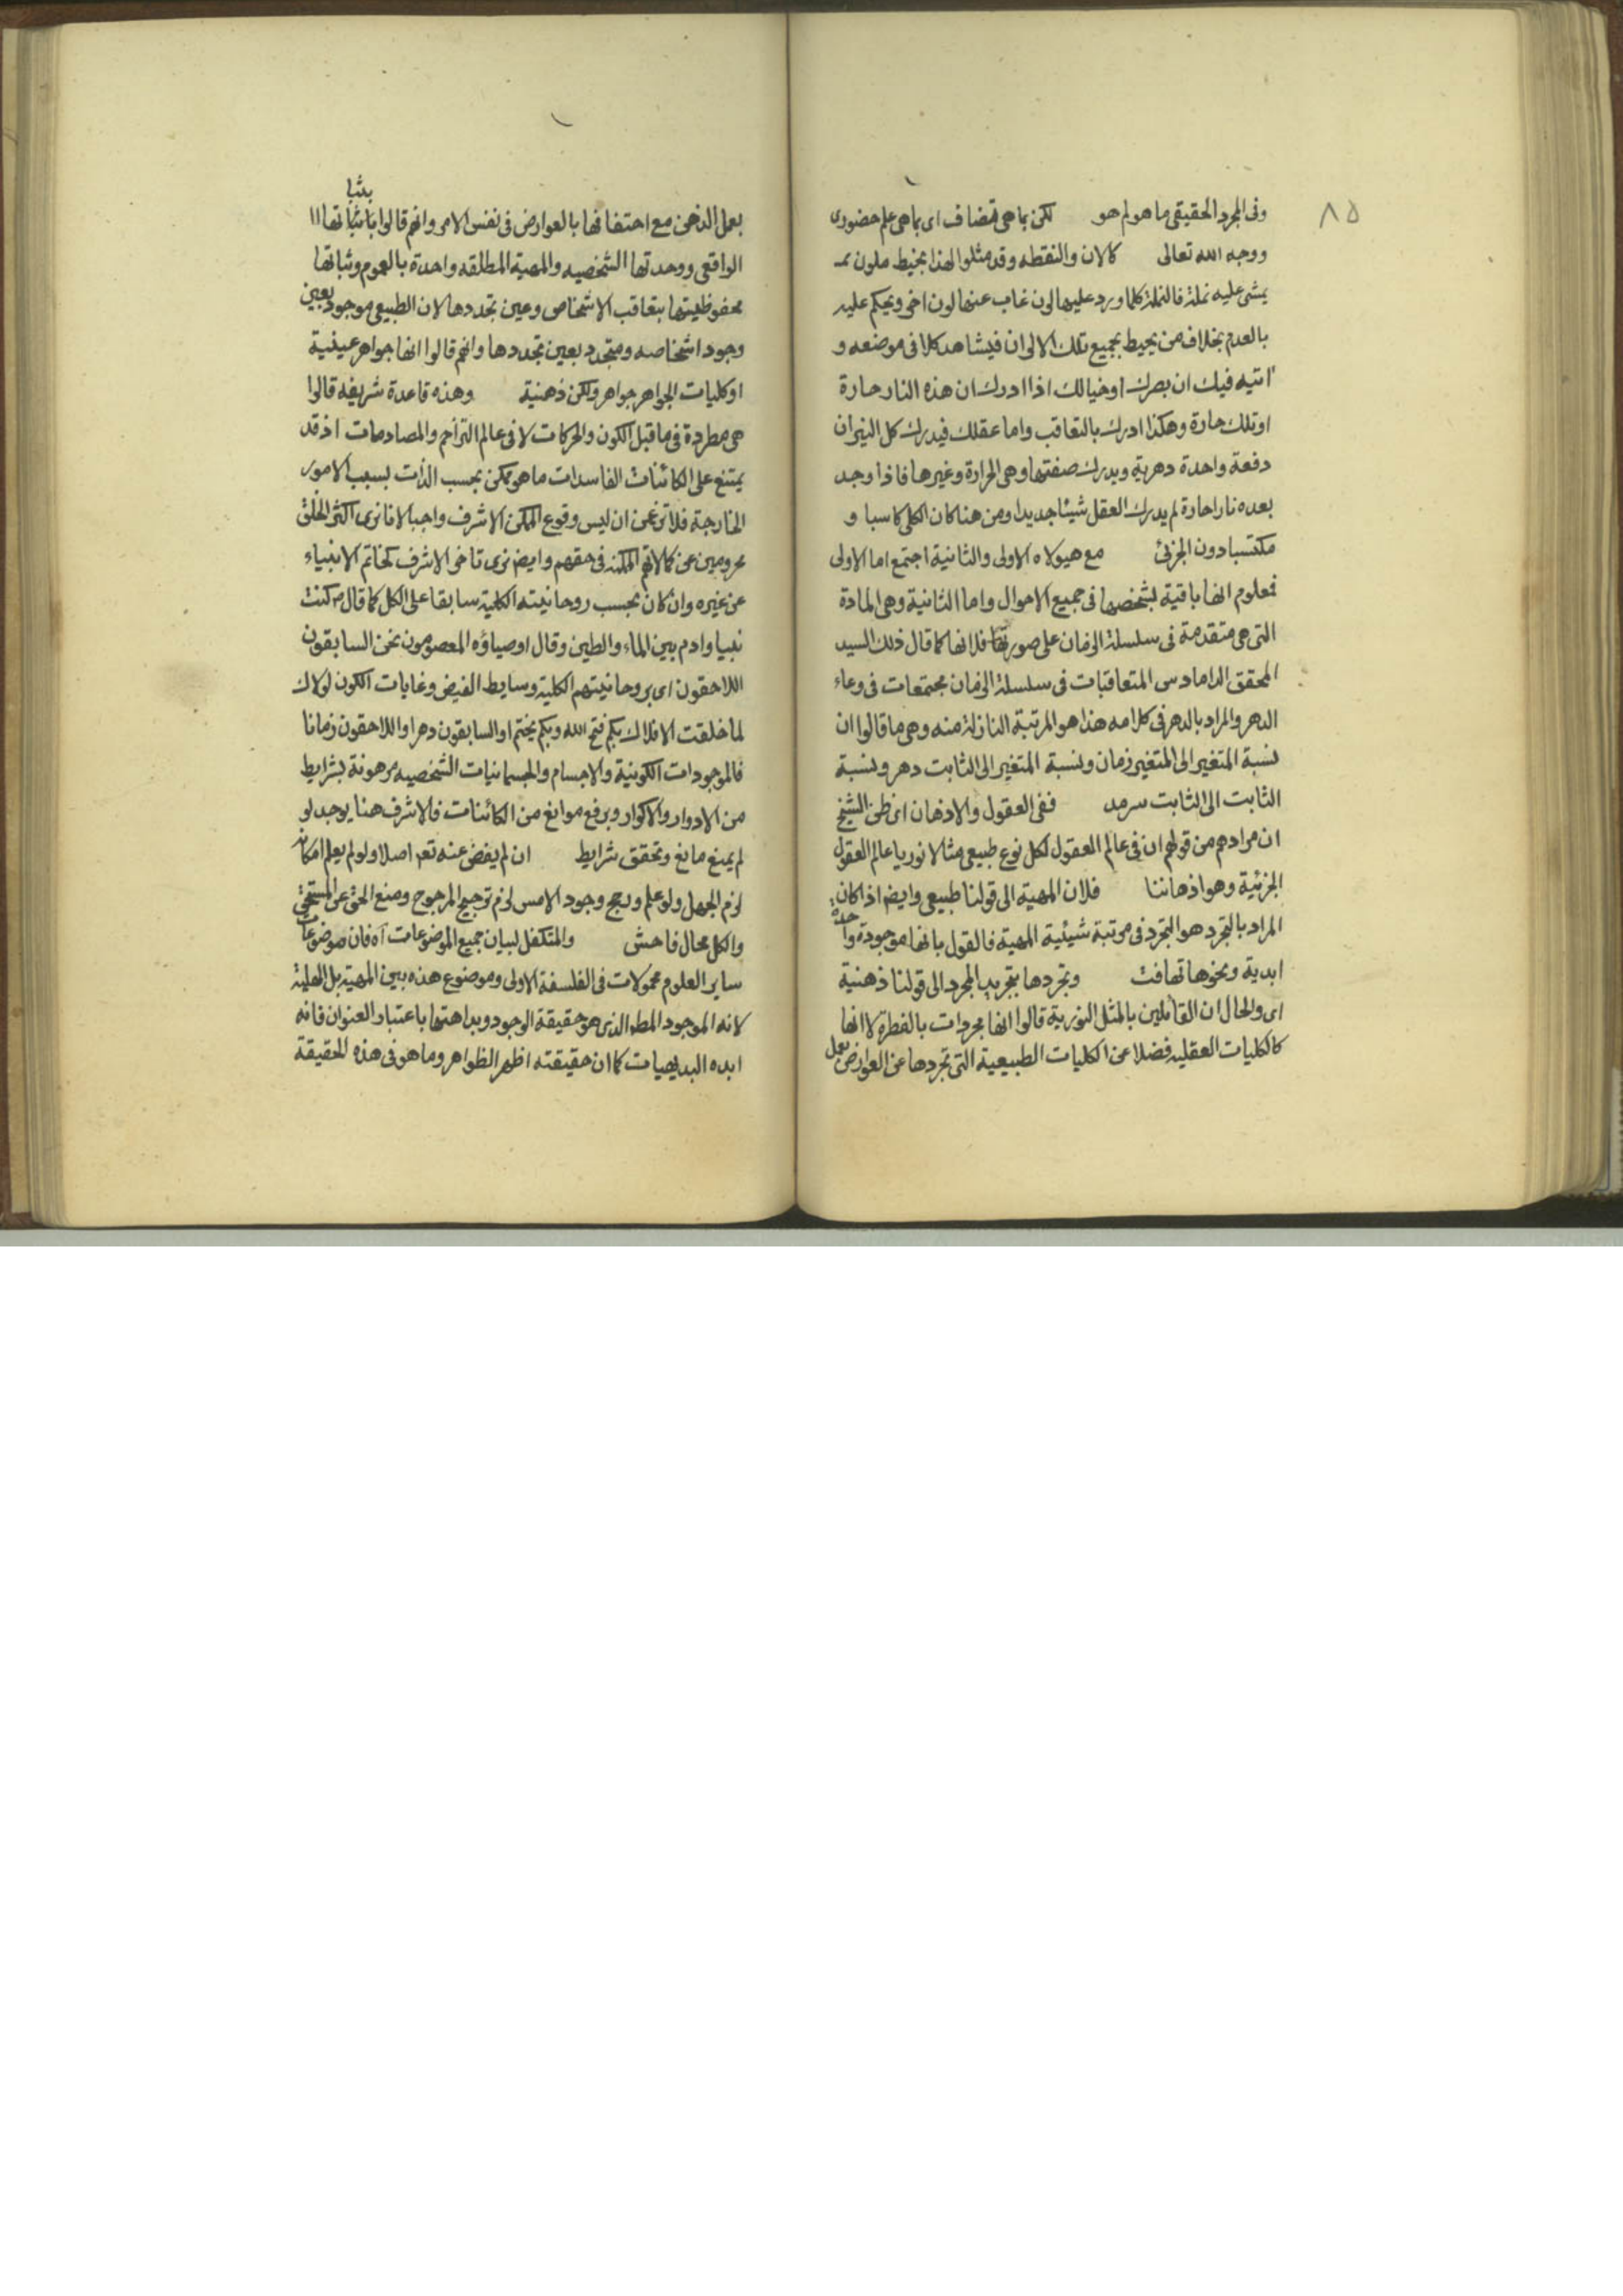 ٨٥
وفى المجرد الحقيقى ما هو لم هو لكن بما هى مضاف اى بما هى علم حضورى
ووجه الله تعالى كالان والنقطه وقد مثلوا لهذا بخيط ملون
يمشى عليه نملة فالنملة كلما ورد عليها لون غاب عنها لون اخر ويحكم عليه
بالعدم بخلاف من يحيط بجميع تلك الالوان فيشاهد كلا فى موضعه و
ايته فيك ان بصرك او خيالك اذا ادرك ان هذه النار حارة
او تلك حارة وهكذا ادرك بالتعاقب واما عقلك فيدرك كل النيران
دفعة واحدة دهرية ويدرك صفتها وهى الحرارة وغيرها فاذا وجد
بعده نارا حارة لم يدرك العقل شيئا جديدا ومن هنا كان الكلى كاسبا و
مكتسبا دون الجزئى مع هيولاه الاولى والثانية اجتمع اما الاولى
فمعلوم انها باقية بشخصها فى جميع الاحوال واما الثانية وهى المادة
التى هى متقدمة فى سلسلة الزمان على صورتها فلانها كما قال ذلك السيد
المحقق الداماد س المتعاقبات فى سلسلة الزمان مجتمعات فى وعاء
الدهر والمراد بالدهر فى كلامه هذا هو المرتبة النازلة منه وهى ما قالوا ان
نسبة المتغير الى المتغير زمان ونسبة المتغير الى الثابت دهر ونسبة
الثابت الى الثابت سرمد ففى العقول والاذهان اى ظن الشيخ
ان مرادهم من قولهم ان فى عالم العقول لكل نوع طبيعى مثالا نوريا عالم العقول
الجزئية وهو اذهاننا فلان المهية الى قولنا طبيعى وايضا اذا كان
المراد بالتجرد هو التجرد فى مرتبة شيئية المهية فالقول بانها موجودة واحدة
ابدية ونحوها تهافت وتجردها بتجريد المجرد الى قولنا ذهنية
اى والحال ان القائلين بالمثل النورية قالوا انها مجردات بالفطرة لا انها
كالكليات العقليه فضلا عن الكليات الطبيعية التى تجردها عن العوارض بعمل
بعمل الذهن مع احتفافها بالعوارض فى نفس الامر وانهم قالوا بثباتها
الواقعى ووحدتها الشخصيه والمهية المطلقه واحدة بالعموم وثباتها
محفوظيتها بتعاقب الاشخاص وعين تجددها لان الطبيعى موجود بعين
وجود اشخاصه ومتجدد بعين تجددها وانهم قالوا انها جواهر عينية
او كليات الجواهر جواهر ولكن ذهنية وهذه قاعدة شريفه قالوا
هى مطردة فى ما قبل الكون والحركات لا فى عالم التزاحم والمصادمات اذ قد
يمتنع على الكائنات الفاسدات ما هو ممكن بحسب الذات بسبب الامور
الخارجة فلا تزعمن ان ليس وقوع الممكن الاشرف واجبا لانا نرى اكثر الخلق
محرومين عن كمالاتهم الممكنه فى حقهم وايض نرى تاخر الاشرف كخاتم الانبياء
عن غيره وان كان بحسب روحانيته الكلية سابقا على الكل كما قال ص كنت
نبيا وادم بين الماء والطين وقال اوصياؤه المعصومون نحن السابقون
اللاحقون اى بروحانيتهم الكلية وسايط الفيض وغايات الكون لولاك
لما خلقت الافلاك بكم فتح الله وبكم يختم او السابقون دهرا واللاحقون زمانا
فالموجودات الكونية والاجسام والجسمانيات الشخصيه مرهونة بشرايط
من الادوار والاكوار وبرفع موانع من الكائنات فالاشرف هنا يوجد لو
لم يمنع مانع وتحقق شرايط ان لم يفض عنه تعم اصلا ولو لم يعلم امكانه
لزم الجهل ولو علم ورجح وجود الاخس لزم ترجيح المرجوح ومنع الحق عن المستحق
والكل محال فاحش والمتكفل لبيان جميع الموضوعات آه فان موضوعات
ساير العلوم محمولات فى الفلسفة الاولى وموضوع هذه بين المهية بل الهلية
لانه الموجود المطلق الذى هو حقيقة الوجود وبداهتها باعتبار العنوان فانه
ابده البديهيات كما ان حقيقته اظهر الظواهر وما هو فى هذه الحقيقة